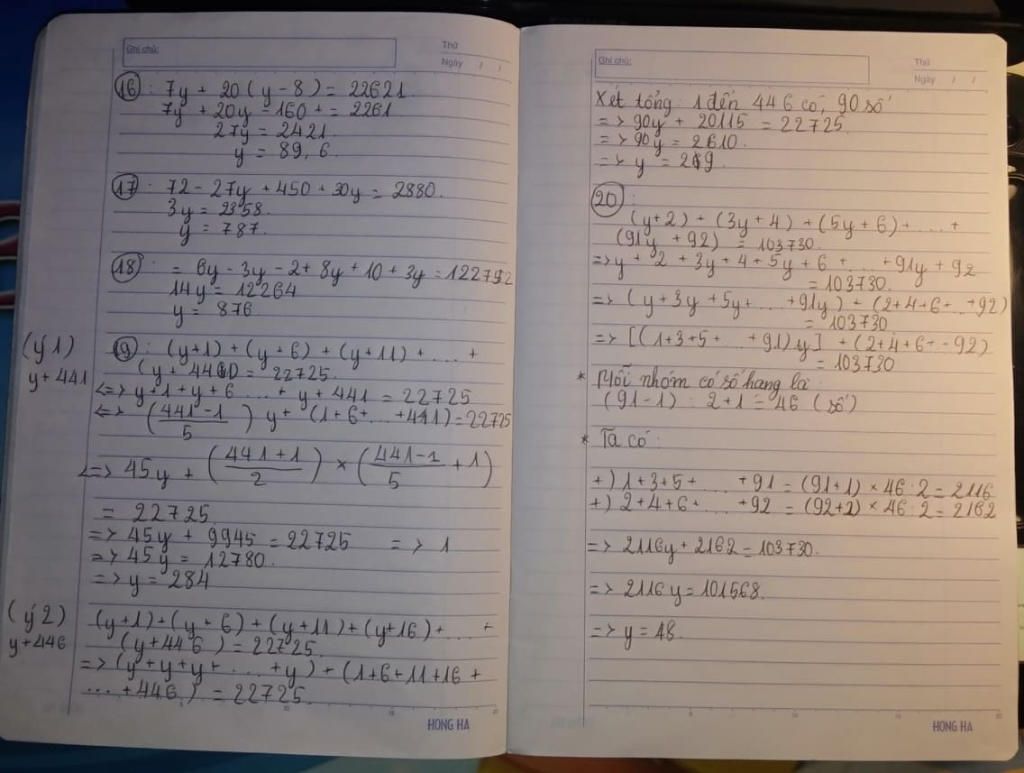 Ghi chú:
Thứ
Ngày / /
16 : 7y + 20 (y - 8) = 22621
7y + 20y - 160 + = 2261
27y = 2421
y = 89, 6.
17 : 72 - 27y + 450 + 30y = 2880.
3y = 2358.
y = 787.
18 : = 6y - 3y - 2 + 8y + 10 + 3y = 122792
14y = 12264
y = 876
(ý 1)
y + 441
19 : (y+1) + (y+6) + (y+11) + ... +
(y + 441) = 22725.
<=> y+1 + y+6 ... + y+441 = 22725
<=> (441-1 / 5) y + (1+6+ ... +441) = 22725
<=> 45y + (441+1 / 2) × (441-1 / 5 + 1)
= 22725.
=> 45y + 9945 = 22725 => 1
=> 45y = 12780.
=> y = 284
(ý 2)
y + 446
(y+1) + (y+6) + (y+11) + (y+16) + ... +
(y+446) = 22725.
=> (y+y+y+ ... +y) + (1+6+11+16 +
... +446) = 22725.
HONG HA
Ghi chú:
Thứ
Ngày / /
Xét tổng 1 đến 446 có, 90 số
=> 90y + 20115 = 22725.
=> 90y = 2610.
=> y = 29.
20 :
(y+2) + (3y+4) + (5y+6) + ... +
(91y + 92) = 103730.
=> y + 2 + 3y + 4 + 5y + 6 + ... + 91y + 92
= 103730.
=> (y + 3y + 5y + ... + 91y) + (2+4+6+ ... +92)
= 103730
=> [(1+3+5+ ... +91)y] + (2+4+6+ - 92)
= 103730
* Mỗi nhóm có số hạng là:
(91-1) : 2 + 1 = 46 (số)
* Ta có:
+) 1+3+5+ ... +91 = (91+1) × 46 : 2 = 2116
+) 2+4+6+ ... +92 = (92+2) × 46 : 2 = 2162
=> 2116y + 2162 = 103730.
=> 2116y = 101568.
=> y = 48.
HONG HA